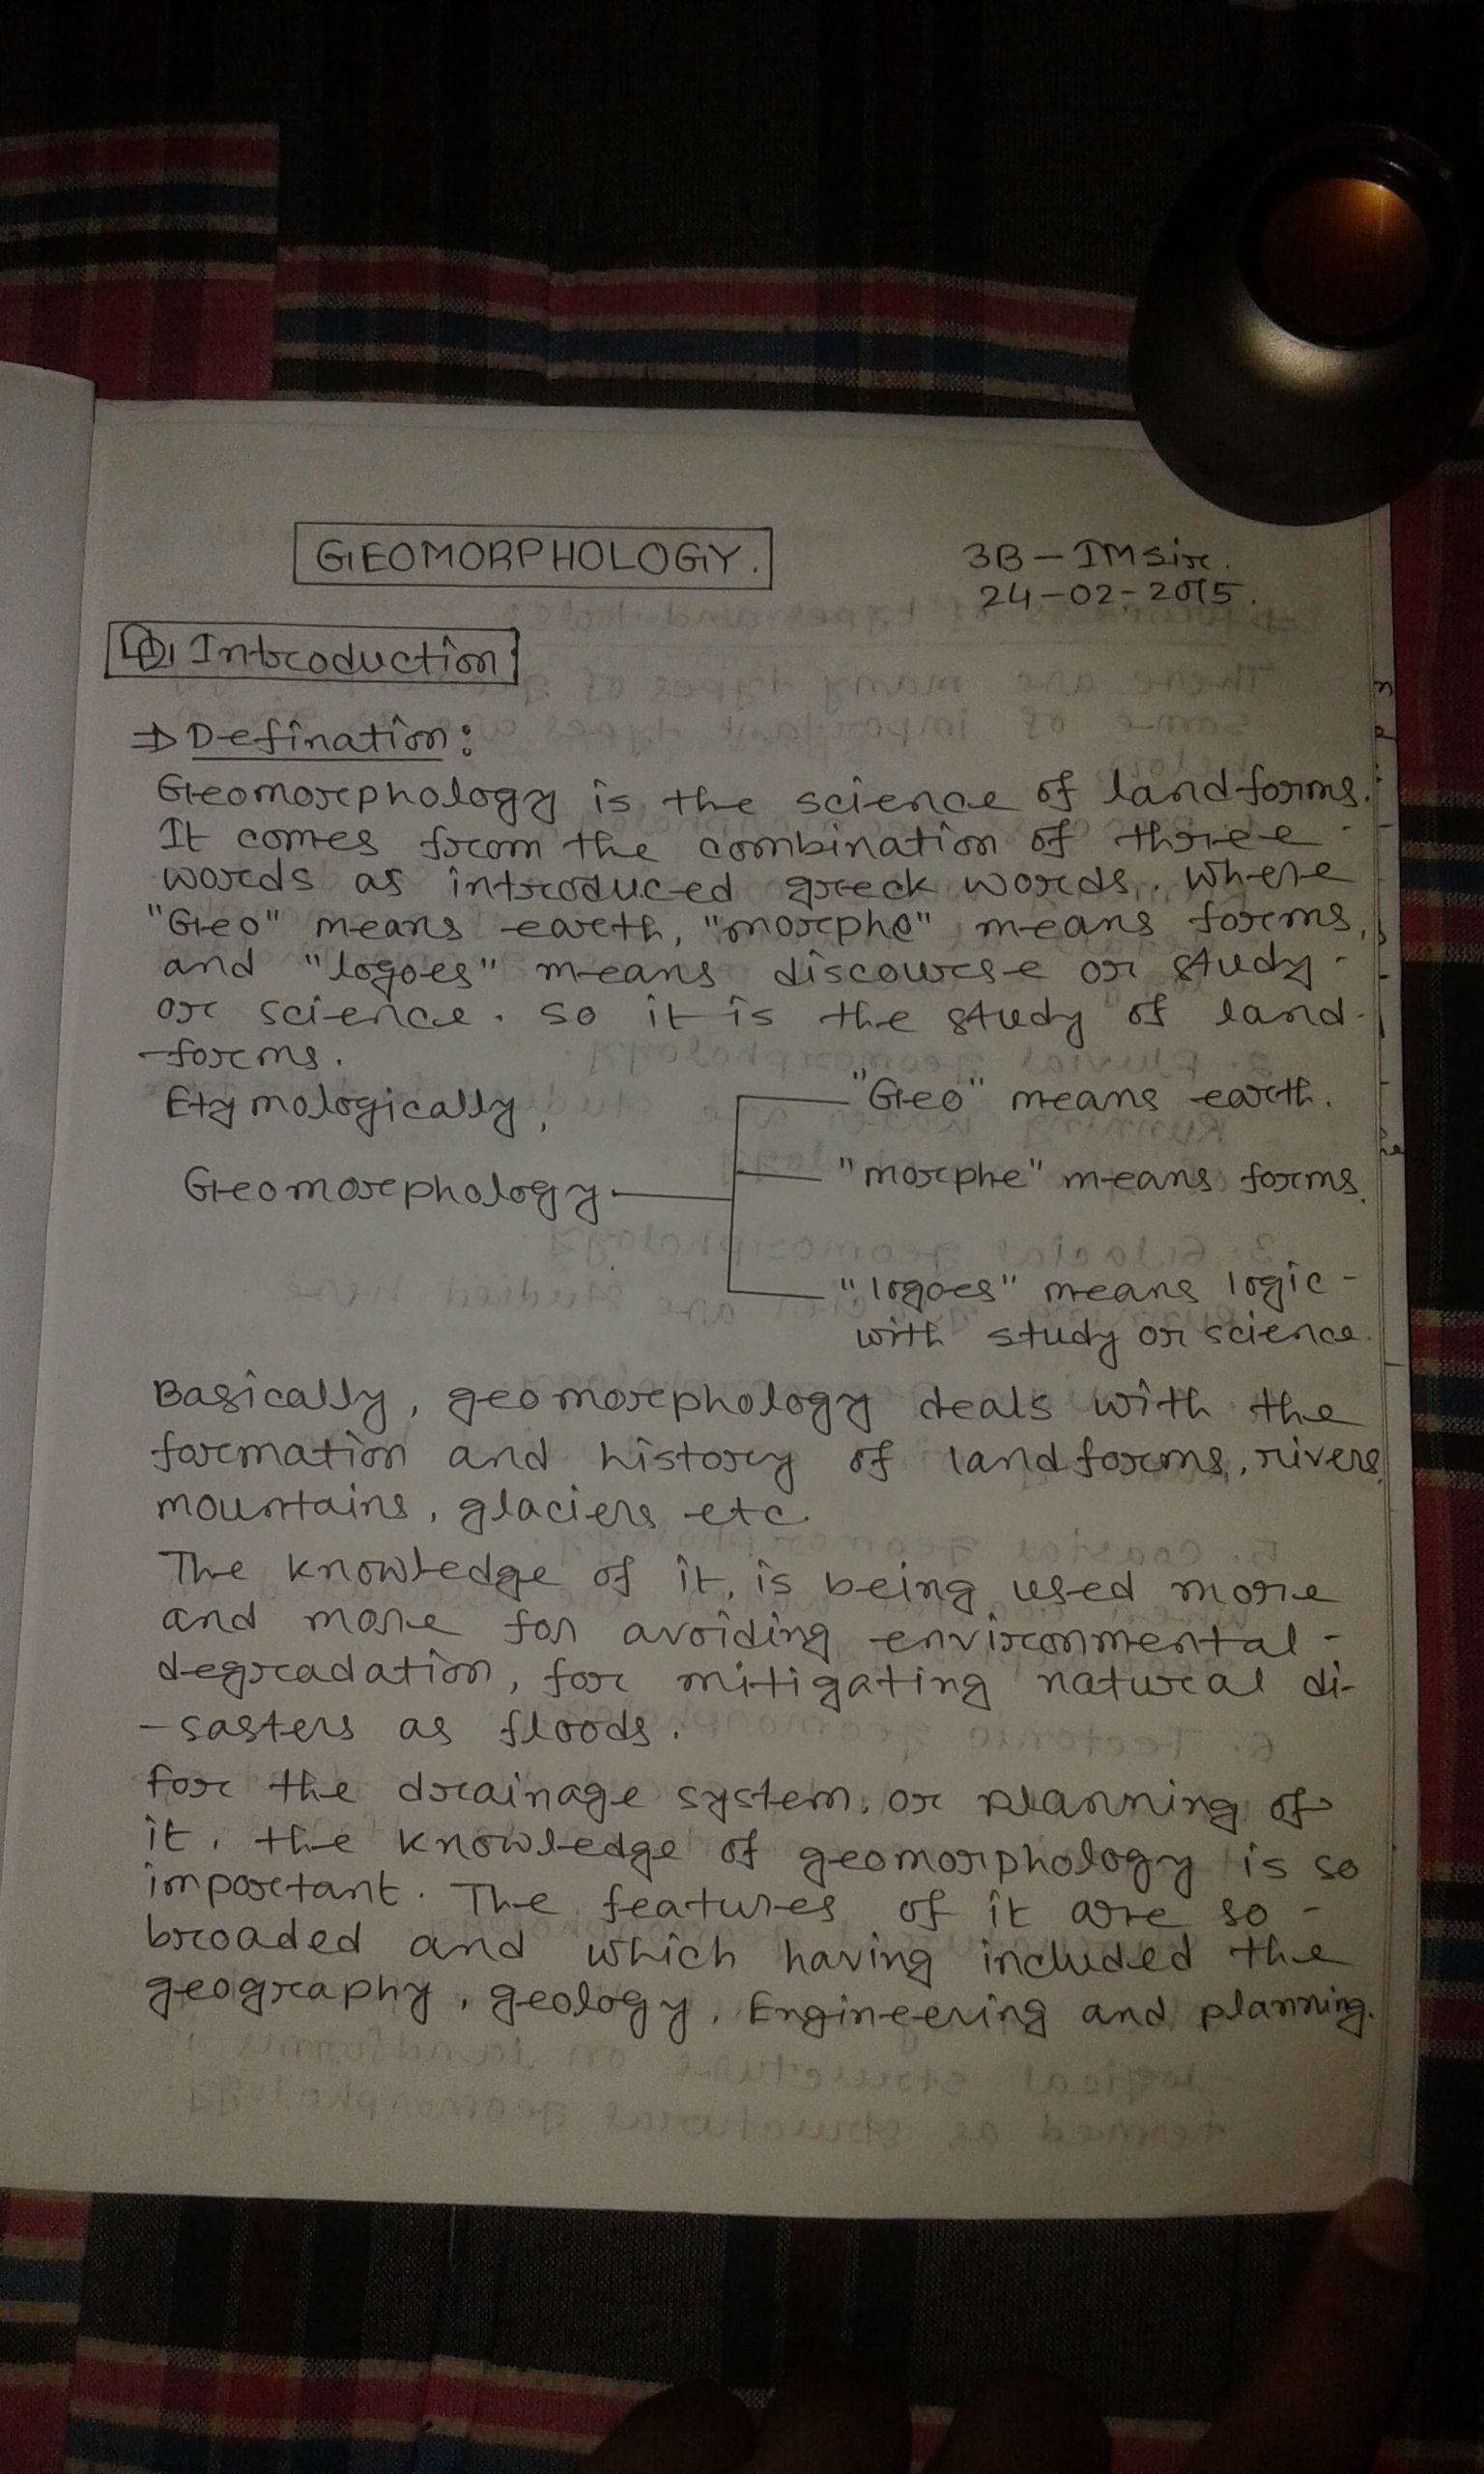 GEOMORPHOLOGY.
3B-IM Sir.
24-02-2015.
Introduction
⇒ Defination:
Geomorphology is the science of landforms.
It comes from the combination of three
words as introduced greek words. Where
"Geo" means earth, "morpho" means forms,
and "logoes" means discourse or study-
or science. So it is the study of land-
-forms.
Etymologically,
"Geo" means earth.
Geomorphology
"morphe" means forms.
"logoes" means logic-
with study or science.
Basically, geomorphology deals with the
formation and history of landforms, rivers,
mountains, glaciers etc.
The knowledge of it, is being used more
and more for avoiding environmental-
degradation, for mitigating natural di-
-sasters as floods.
for the drainage system, or planning of
it, the knowledge of geomorphology is so
important. The features of it are so-
broaded and which having included the
geography, geology, Engineering and planning.